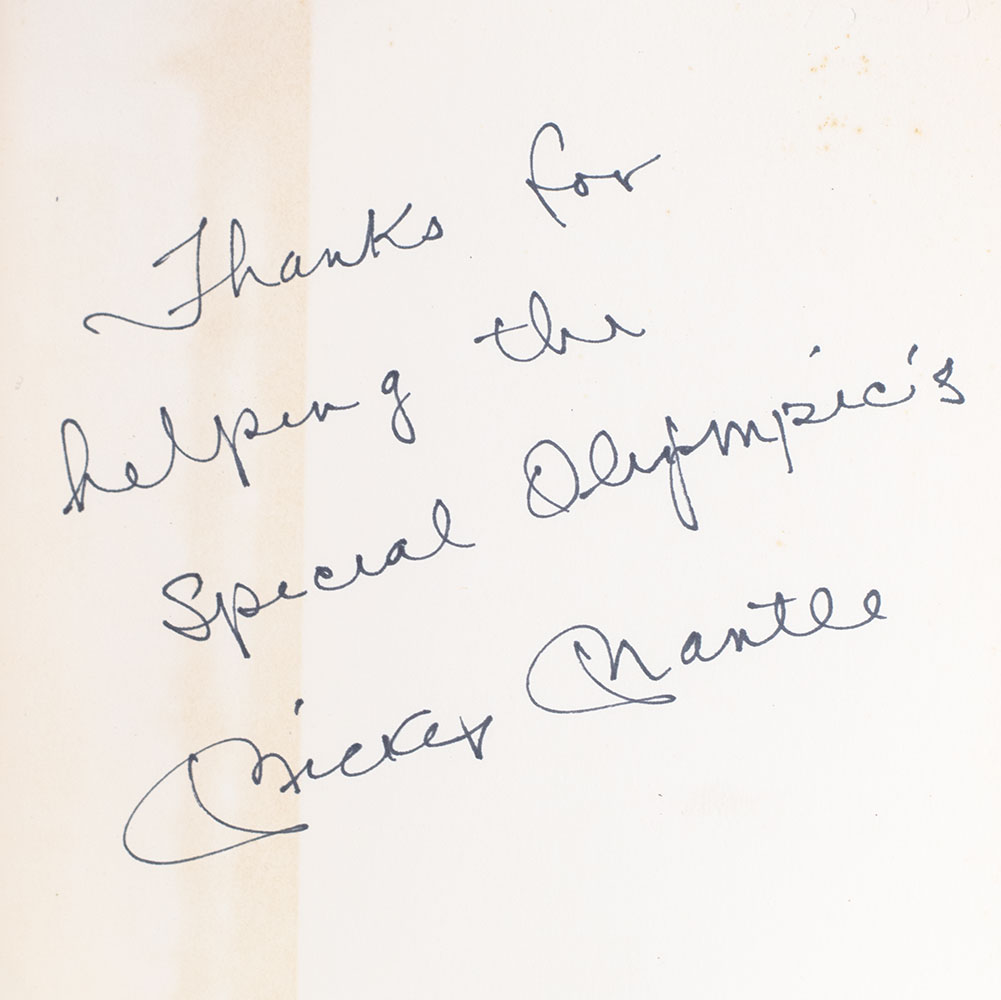 Thanks for
helping the
Special Olympic's
Mickey Mantle